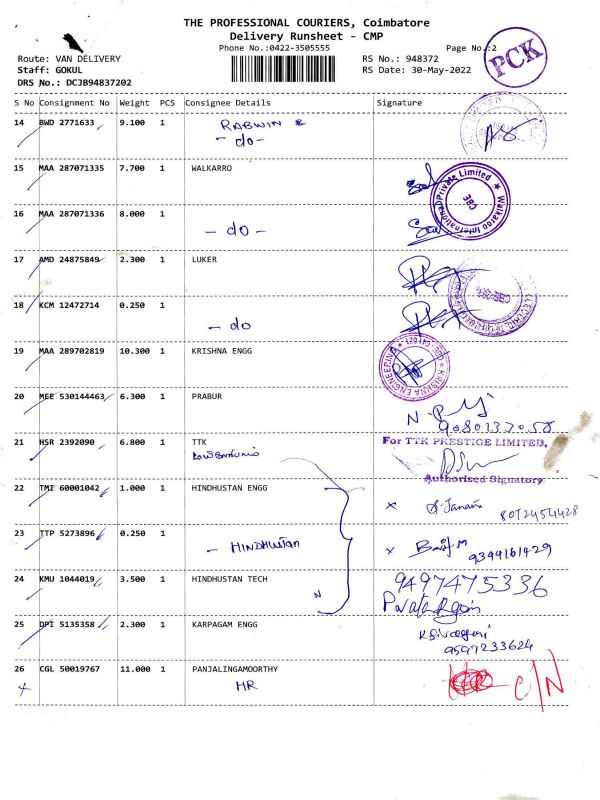 THE PROFESSIONAL COURIERS, Coimbatore
Delivery Runsheet - CMP
Phone No.:0422-3505555
Page No.:2
PCK
Route: VAN DELIVERY
RS No.: 948372
Staff: GOKUL
RS Date: 30-May-2022
DRS No.: DCJB94837202
S No Consignment No Weight PCS Consignee Details Signature
14 BWD 2771633 9.100 1
- do -
15 MAA 287071335 7.700 1 WALKARRO
Walkaroo International Private Limited
CBE
16 MAA 287071336 8.000 1
- do -
17 AMD 24875849 2.300 1 LUKER
18 KCM 12472714 0.250 1
- do
19 MAA 289702819 10.300 1 KRISHNA ENGG
KRISHNA ENGINEERING
20 MEE 530144463 6.300 1 PRABUR
9080137058
21 HSR 2392090 6.800 1 TTK
For TTK PRESTIGE LIMITED,
Authorised Signatory
22 TMI 60001042 1.000 1 HINDHUSTAN ENGG
x
8072454428
23 TTP 5273896 0.250 1
- HINDHUSTAN
x
9344161429
24 KMU 1044019 3.500 1 HINDHUSTAN TECH
N
9497475336
25 DPI 5135358 2.300 1 KARPAGAM ENGG
9597233624
26 CGL 50019767 11.000 1 PANJALINGAMOORTHY
HR
C/N